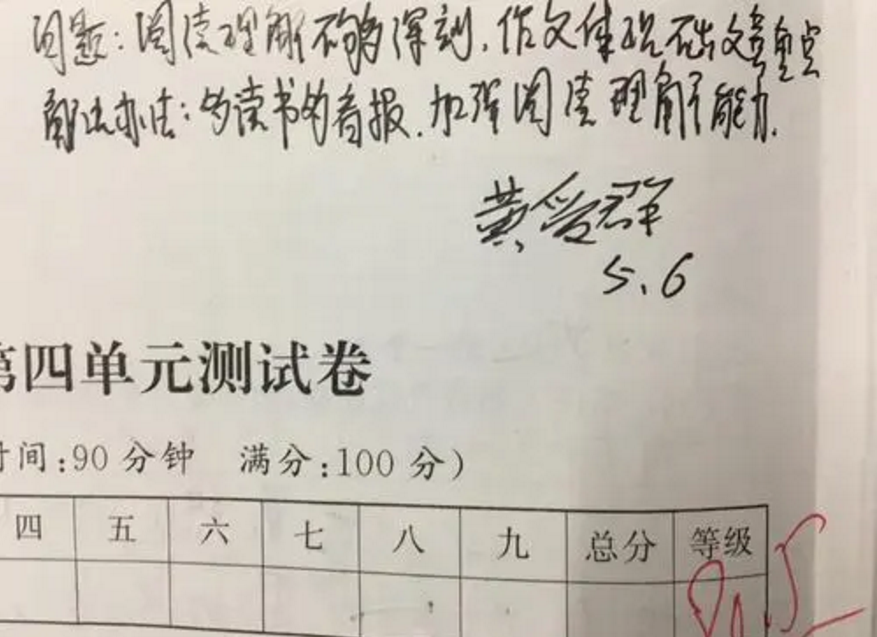 问题：阅读理解不够深刻，作文体现不出文章重点
解决办法：多读书多看报，加强阅读理解能力.
黄爱群
5.6
第四单元测试卷
时间:90分钟 满分:100分)
四 五 六 七 八 九 总分 等级